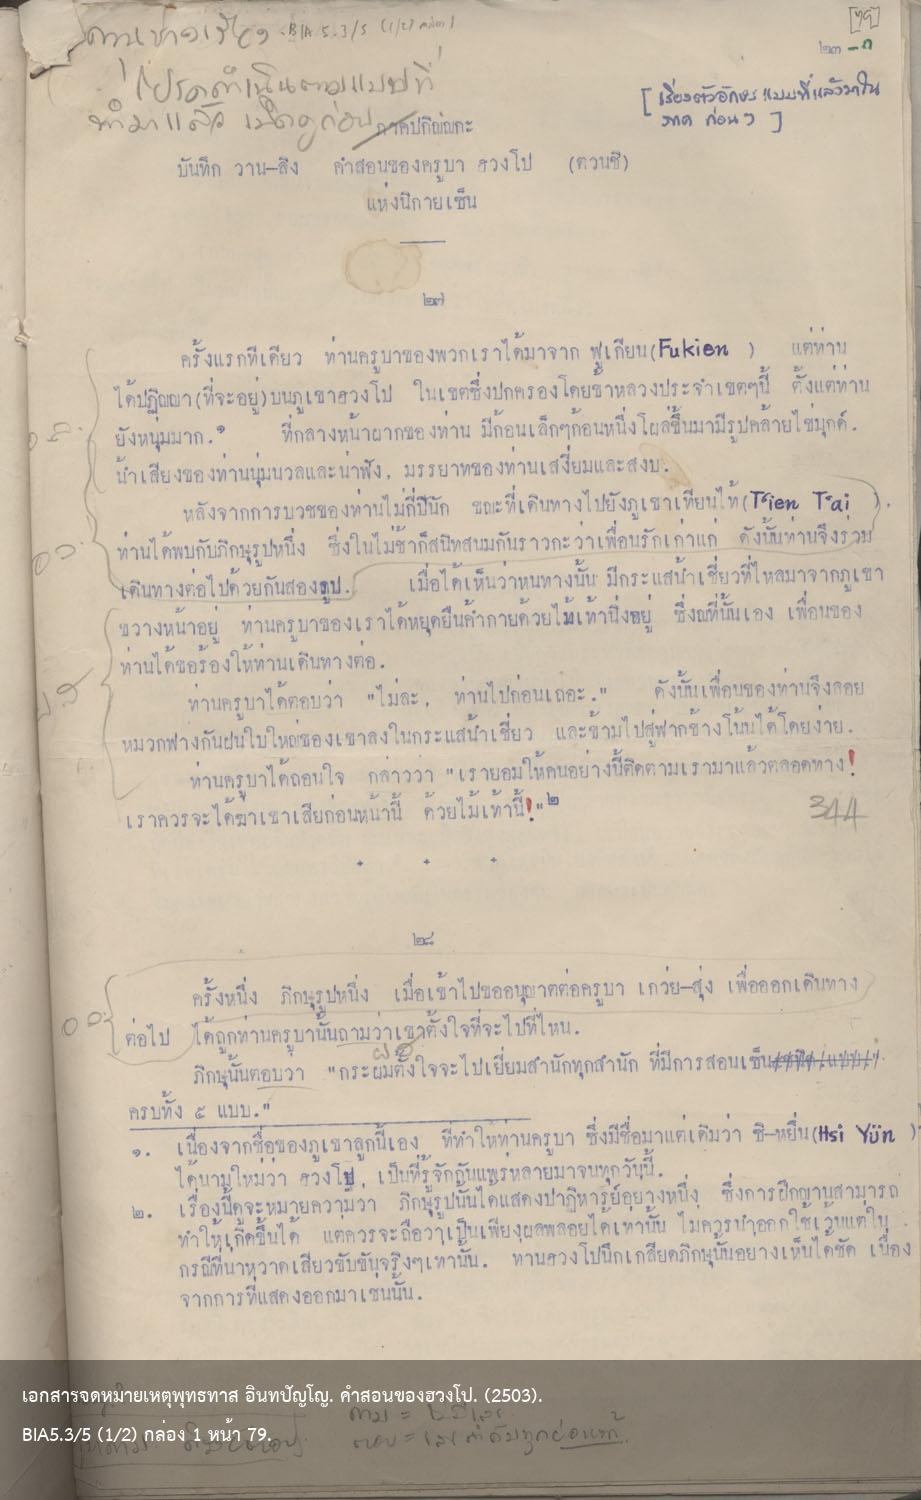 [๗๕]
BIA 5.3/5 (1/2)
๒๓ -ก
โปรดดำเนินตามแบบที่
[ เรียงตัวอักษร แบบที่แล้วมาใน
ทำมาแล้ว เปิดดูก่อน
ภาค ก่อน ๆ ]
ภาคปกิณณะ
บันทึก วาน-ลิง คำสอนของครูบา ฮวงโป (ตวนชิ)
แห่งนิกายเซ็น
๒๗
ครั้งแรกทีเดียว ท่านครูบาของพวกเราได้มาจาก ฟูเกียน(Fukien ) แต่ท่าน
ได้ปฏิญญา(ที่จะอยู่)บนภูเขาฮวงโป ในเขตซึ่งปกครองโดยข้าหลวงประจำเขตๆนี้ ตั้งแต่ท่าน
ยังหนุ่มมาก.๑ ที่กลางหน้าผากของท่าน มีก้อนเล็กๆก้อนหนึ่งโผล่ขึ้นมามีรูปคล้ายไข่มุกด์.
น้ำเสียงของท่านนุ่มนวลและน่าฟัง, มรรยาทของท่านเสงี่ยมและสงบ.
หลังจากการบวชของท่านไม่กี่ปีนัก ขณะที่เดินทางไปยังภูเขาเทียนไท้(T'ien T'ai ).
ท่านได้พบกับภิกษุรูปหนึ่ง ซึ่งในไม่ช้าก็สนิทสนมกันราวกะว่าเพื่อนรักเก่าแก่ ดังนั้นท่านจึงร่วม
เดินทางต่อไปด้วยกันสองรูป. เมื่อได้เห็นว่าหนทางนั้น มีกระแสน้ำเชี่ยวที่ไหลมาจากภูเขา
ขวางหน้าอยู่ ท่านครูบาของเราได้หยุดยืนค้ำกายด้วยไม้เท้านิ่งอยู่ ซึ่งณที่นั้นเอง เพื่อนของ
ท่านได้ขอร้องให้ท่านเดินทางต่อ.
ท่านครูบาได้ตอบว่า "ไม่ละ, ท่านไปก่อนเถอะ." ดังนั้นเพื่อนของท่านจึงลอย
หมวกฟางกันฝนใบใหญ่ของเขาลงในกระแสน้ำเชี่ยว และข้ามไปสู่ฟากข้างโน้นได้โดยง่าย.
ท่านครูบาได้ถอนใจ กล่าวว่า "เรายอมให้คนอย่างนี้ติดตามเรามาแล้วตลอดทาง!
เราควรจะได้ฆ่าเขาเสียก่อนหน้านี้ ด้วยไม้เท้านี้!"๒
344
๒๘
ครั้งหนึ่ง ภิกษุรูปหนึ่ง เมื่อเข้าไปขออนุญาตต่อครูบา เกว่ย-สุ่ง เพื่อออกเดินทาง
ต่อไป ได้ถูกท่านครูบานั้นถามว่าเขาตั้งใจที่จะไปที่ไหน.
ภิกษุนั้นตอบว่า "กระผมตั้งใจจะไปเยี่ยมสำนักทุกสำนัก ที่มีการสอนเซ็น
ครบทั้ง ๕ แบบ."
๑. เนื่องจากชื่อของภูเขาลูกนี้เอง ที่ทำให้ท่านครูบา ซึ่งมีชื่อมาแต่เดิมว่า ซิ-หยิ่น(Hsi Yün )
ได้นามใหม่ว่า ฮวงโป, เป็นที่รู้จักกันแพร่หลายมาจนทุกวันนี้.
๒. เรื่องนี้ดูจะหมายความว่า ภิกษุรูปนั้นได้แสดงปาฏิหาริย์อย่างหนึ่ง ซึ่งการฝึกฌานสามารถ
ทำให้เกิดขึ้นได้ แต่ควรจะถือว่าเป็นเพียงผลพลอยได้เท่านั้น ไม่ควรนำออกใช้เว้นแต่ใน
กรณีที่น่าหวาดเสียวขับขันจริงๆเท่านั้น. ท่านฮวงโปนึกเกลียดภิกษุนั้นอย่างเห็นได้ชัด เนื่อง
จากการที่แสดงออกมาเช่นนั้น.
เอกสารจดหมายเหตุพุทธทาส อินทปัญโญ. คำสอนของฮวงโป. (2503).
BIA5.3/5 (1/2) กล่อง 1 หน้า 79.